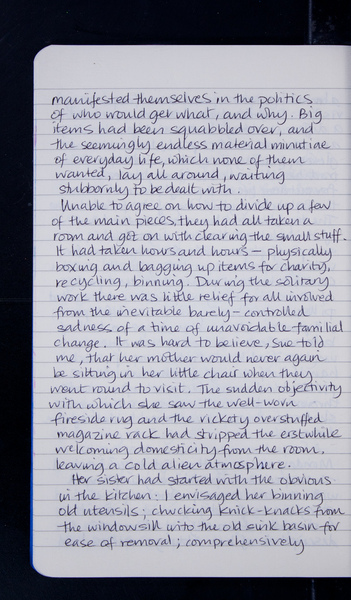 manifested themselves in the politics
of who would get what, and why. Big
items had been squabbled over, and
the seemingly endless material minutiae
of everyday life, which none of them
wanted, lay all around, waiting
stubbornly to be dealt with.
Unable to agree on how to divide up a few
of the main pieces, they had all taken a
room and got on with clearing the small stuff.
It had taken hours and hours – physically
boxing and bagging up items for charity,
recycling, binning. During the solitary
work there was little relief for all involved
from the inevitable barely-controlled
sadness of a time of unavoidable familial
change. It was hard to believe, she told
me, that her mother would never again
be sitting in her little chair when they
went round to visit. The sudden objectivity
with which she saw the well-worn
fireside rug and the rickety overstuffed
magazine rack had stripped the erstwhile
welcoming domesticity from the room,
leaving a cold alien atmosphere.
Her sister had started with the obvious
in the kitchen: I envisaged her binning
old utensils; chucking knick-knacks from
the windowsill into the old sink basin for
ease of removal; comprehensively